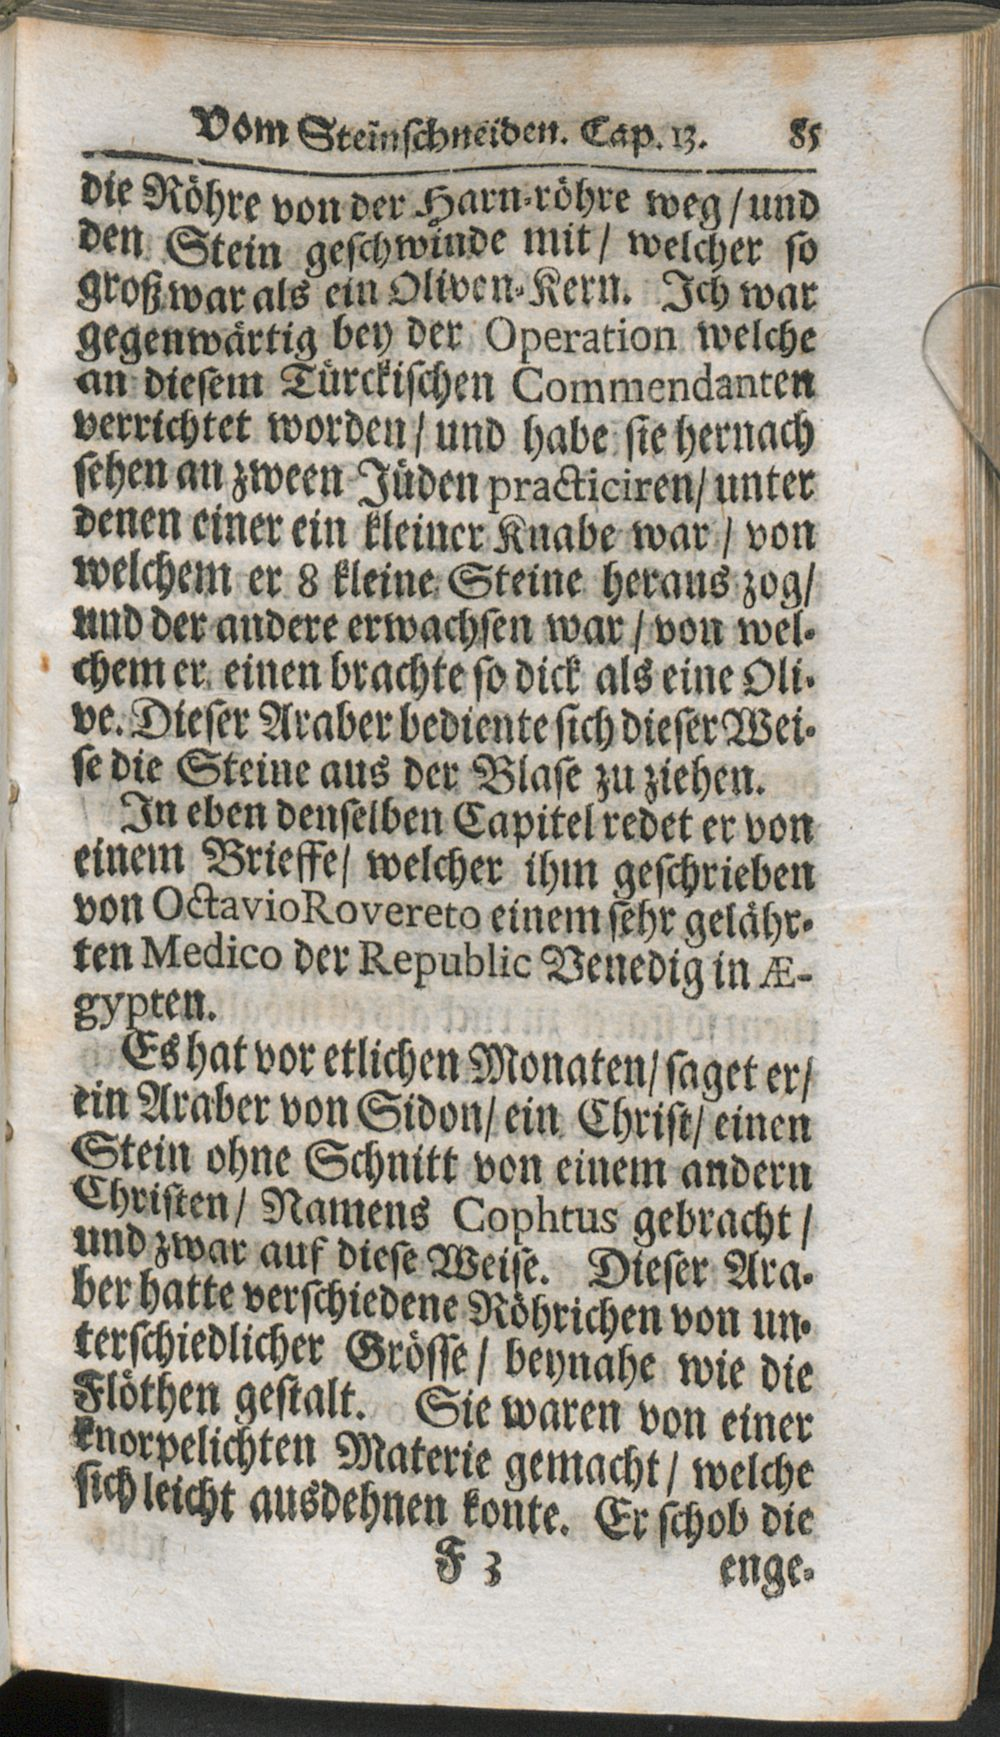 Vom Steinschneiden. Cap. 13. 85
die Röhre von der Harn-röhre weg / und
den Stein geschwinde mit / welcher so
groß war als ein Oliven-Kern. Ich war
gegenwärtig bey der Operation welche
an diesem Türckischen Commendanten
verrichtet worden / und habe sie hernach
sehen an zween Jüden practiciren / unter
denen einer ein kleiner Knabe war / von
welchem er 8 kleine Steine heraus zog /
und der andere erwachsen war / von wel-
chem er einen brachte so dick als eine Oli-
ve. Dieser Araber bediente sich dieser Wei-
se die Steine aus der Blase zu ziehen.
In eben denselben Capitel redet er von
einem Brieffe / welcher ihm geschrieben
von Octavio Rovereto einem sehr gelähr-
ten Medico der Republic Venedig in Æ-
gypten.
Es hat vor etlichen Monaten / saget er /
ein Araber von Sidon / ein Christ / einen
Stein ohne Schnitt von einem andern
Christen / Namens Cophtus gebracht /
und zwar auf diese Weise. Dieser Ara-
ber hatte verschiedene Röhrichen von un-
terschiedlicher Grösse / beynahe wie die
Flöthen gestalt. Sie waren von einer
knorpelichten Materie gemacht / welche
sich leicht ausdehnen konte. Er schob die
F 3 enge-